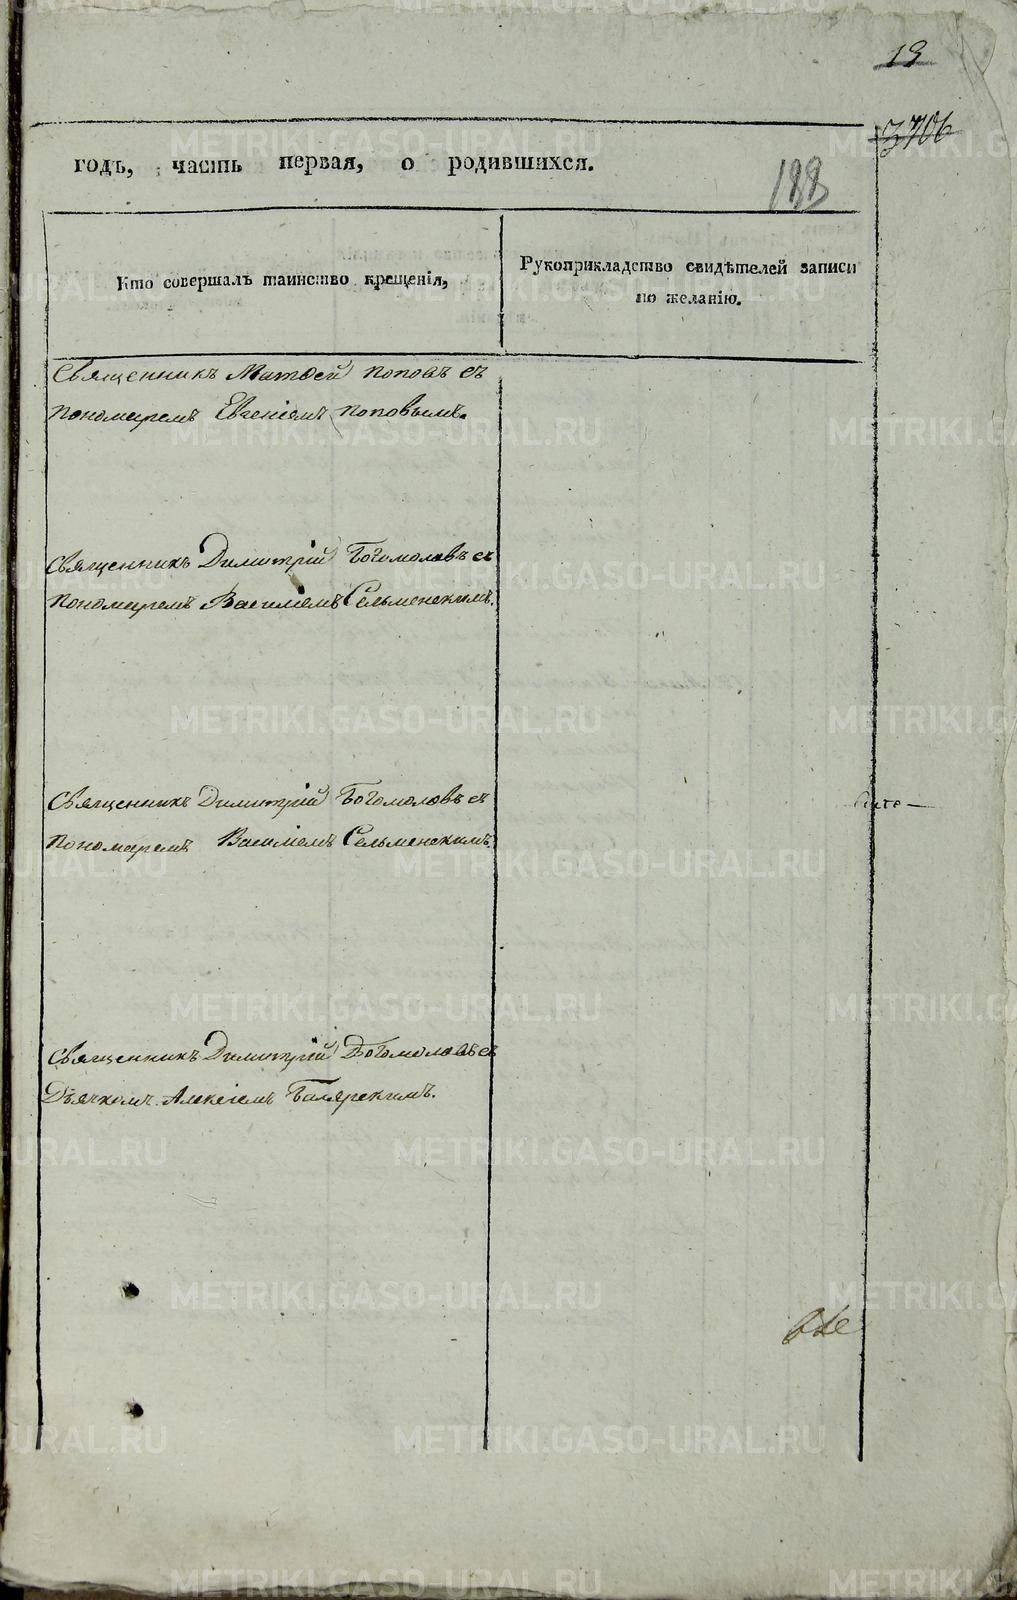 19
3706
годъ, часть первая, о родившихся.
188
Кто совершалъ таинство крещенія,
Рукоприкладство свидѣтелей записи
по желанію.
Священникъ Матѳей Поповъ съ
пономаремъ Евгеніемъ Поповымъ.
Священникъ Димитрій Богомоловъ съ
пономаремъ Василіемъ Сельменскимъ.
Священникъ Димитрій Богомоловъ съ
пономаремъ Василіемъ Сельменскимъ.
Священникъ Димитрій Богомоловъ съ
Дьячкомъ Алексіемъ Боярскимъ.
METRIKI.GASO-URAL.RU